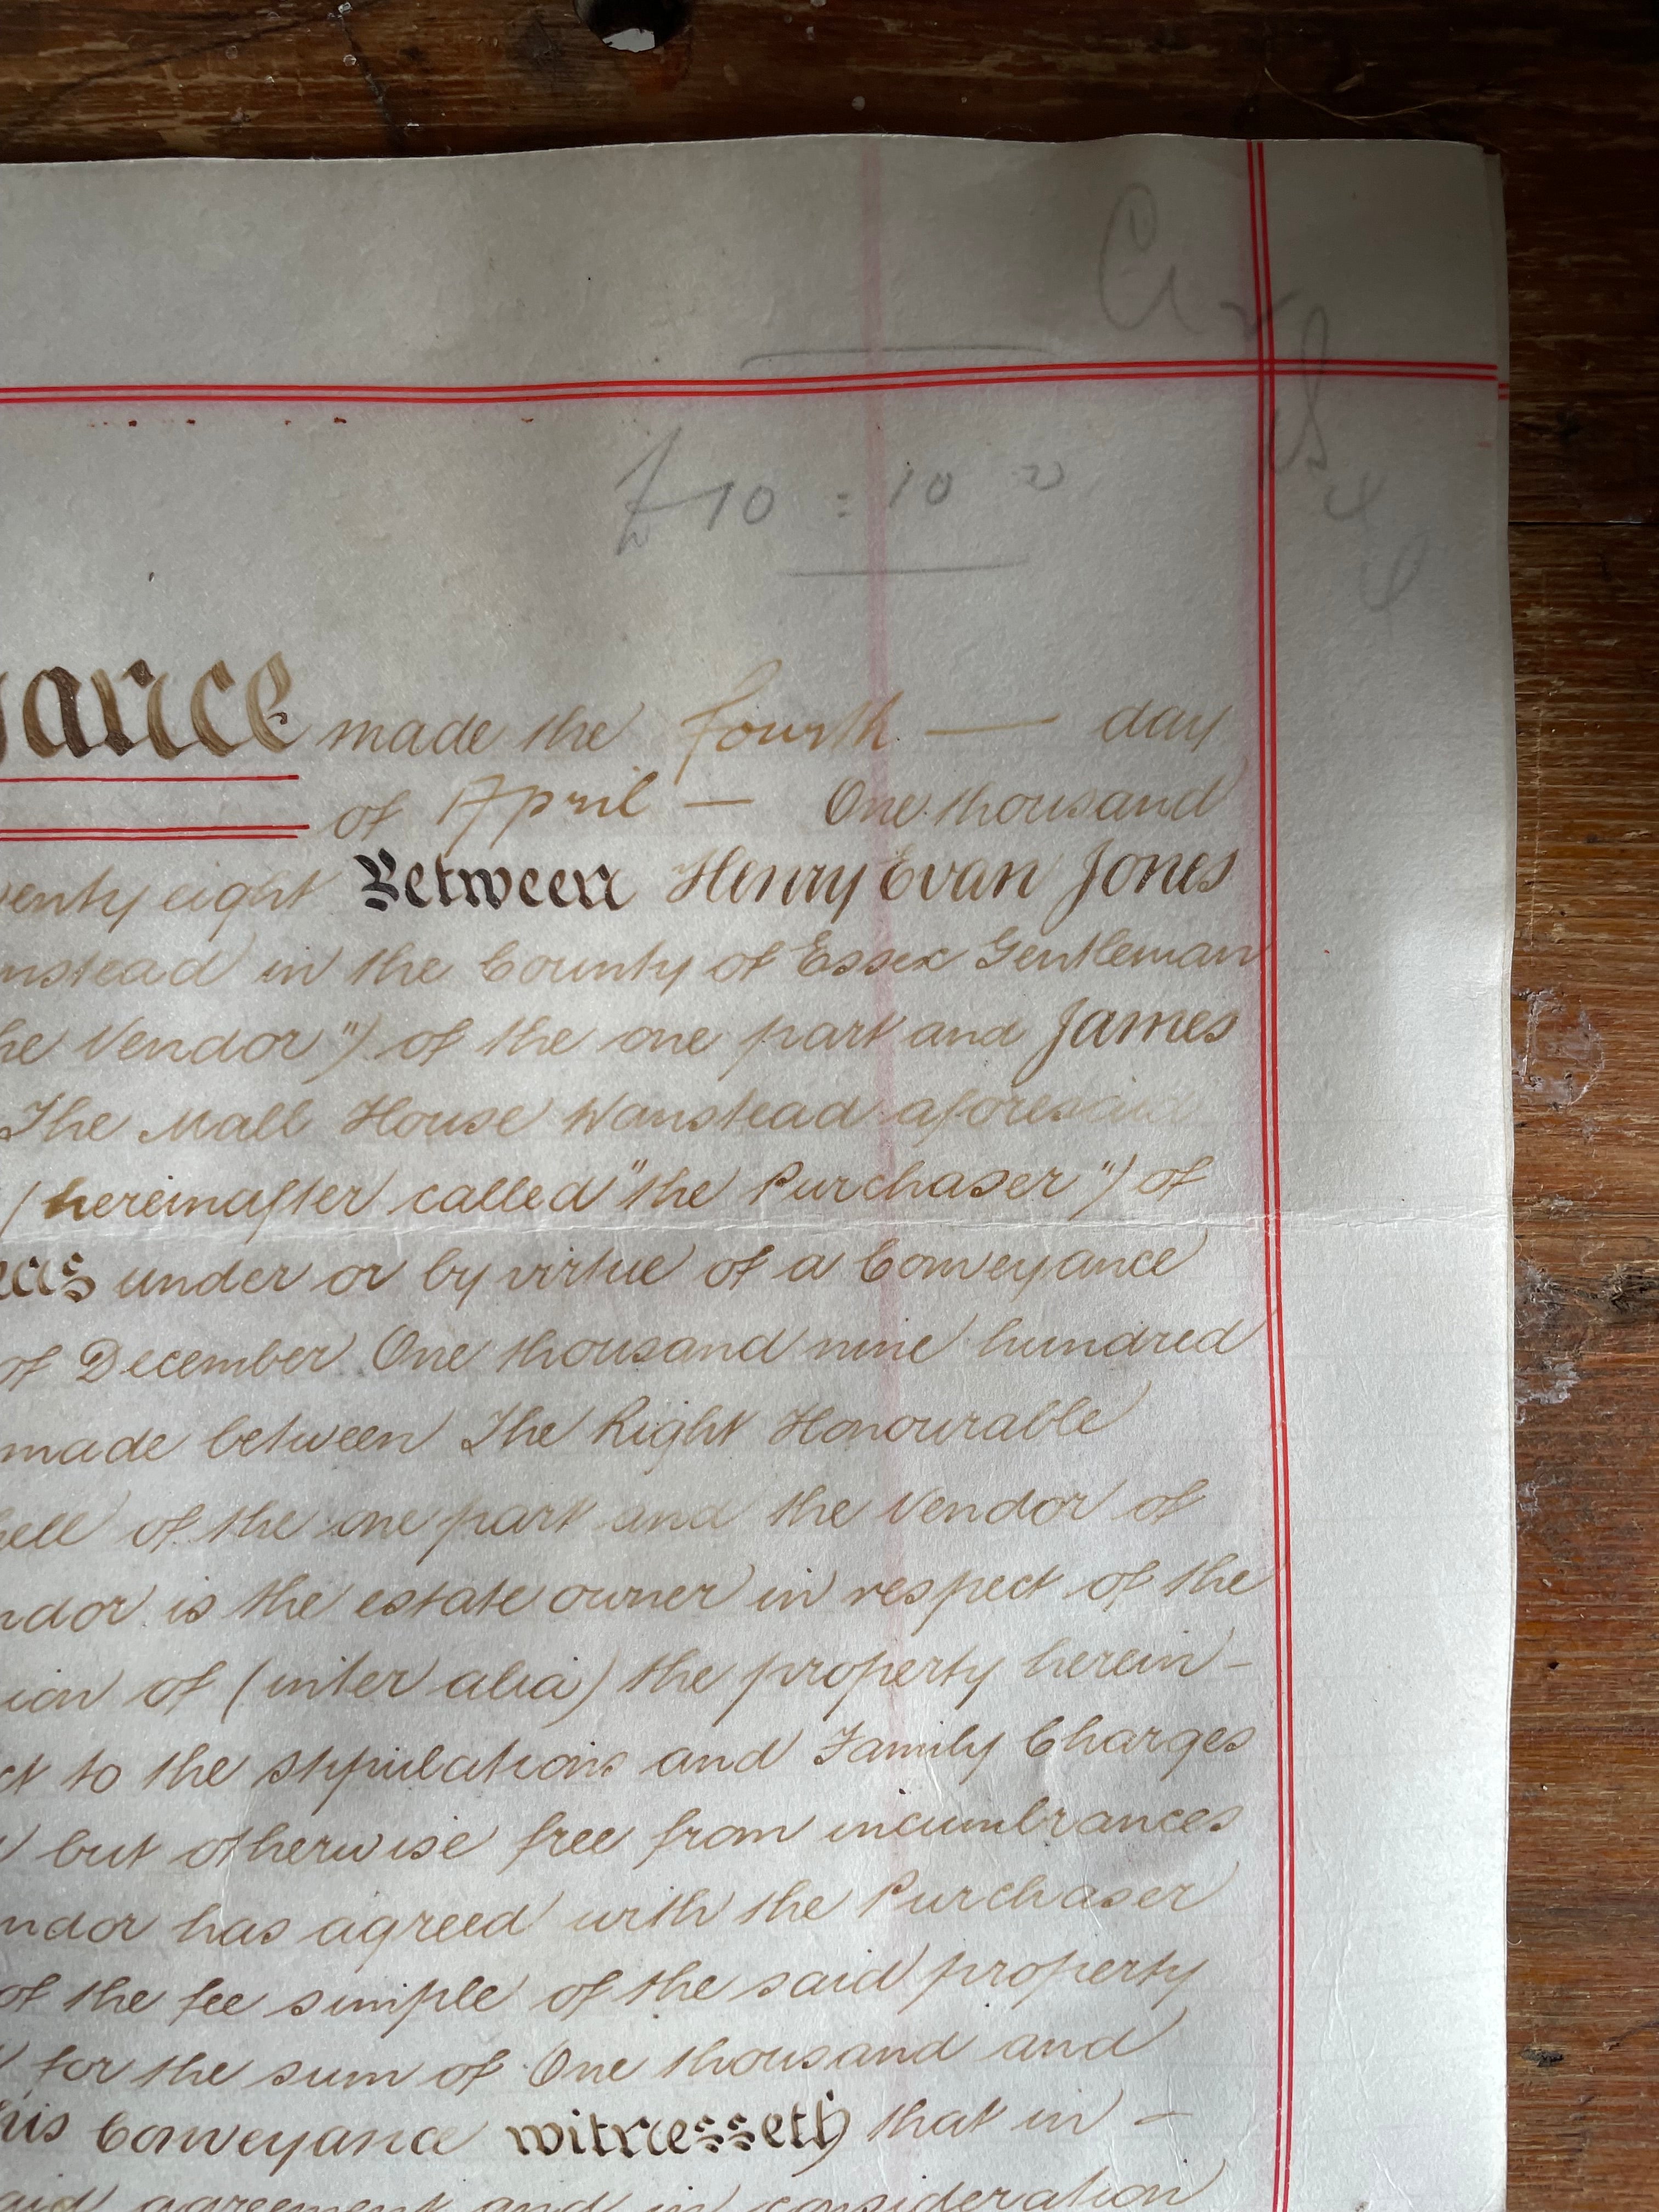 £10 : 10
ance made the fourth — day
of April — One thousand
enty eight Between Henry Evan Jones
nstead in the County of Essex Gentleman
he Vendor") of the one part and James
The Mall House Wanstead aforesaid
(hereinafter called "the Purchaser") of
under or by virtue of a Conveyance
of December One thousand nine hundred
made between The Right Honourable
ell of the one part and the Vendor of
ndor is the estate owner in respect of the
ion of (inter alia) the property herein-
ct to the stipulations and Family Charges
but otherwise free from incumbrances
ndor has agreed with the Purchaser
of the fee simple of the said property
for the sum of One thousand and
his Conveyance witnesseth that in -
aid agreement and in consideration